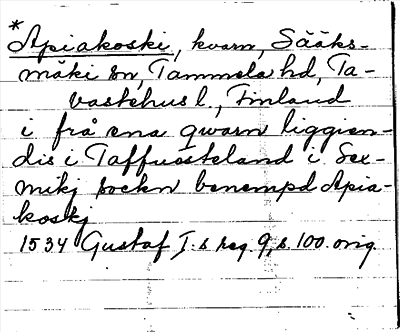 *
Apiakoski, kvarn, Sääks-
mäki sn, Tammela hd, Ta-
vastehus l., Finland
i frå ena qwarn liggien-
dis i Taffuosteland i Sex-
mikj sockn benempd Apia-
koskj
1534 Gustaf I.s reg. 9, s. 100. orig.